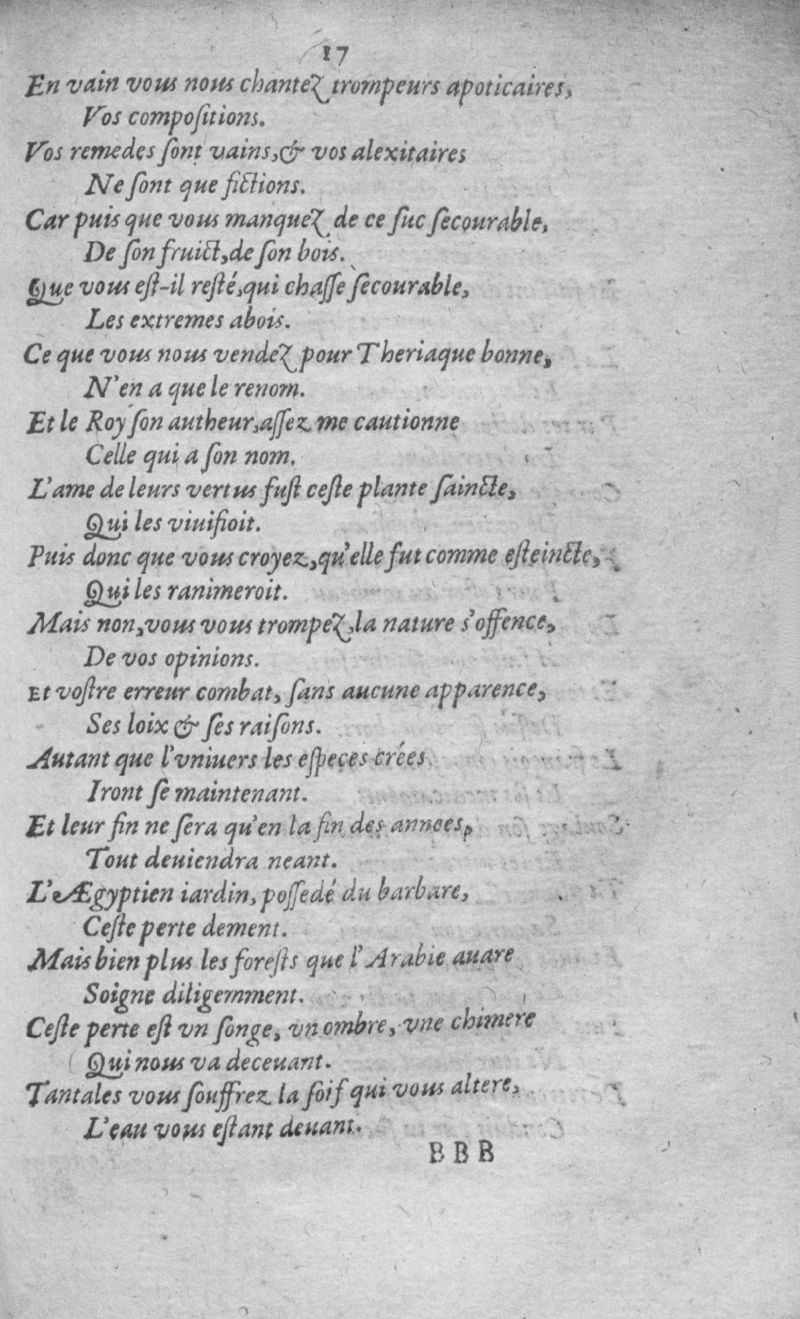 17
En vain vous nous chantez trompeurs apoticaires,
Vos compoſitions.
Vos remedes ſont vains,& vos alexitaires
Ne ſont que fictions.
Car puis que vous manquez de ce ſuc ſecourable,
De ſon fruict,de ſon bois.
Que vous eſt-il reſté,qui chaſſe ſecourable,
Les extremes abois.
Ce que vous nous vendez pour Theriaque bonne,
N'en a que le renom.
Et le Roy ſon autheur,aſſez me cautionne
Celle qui a ſon nom.
L'ame de leurs vertus fuſt ceſte plante ſaincte,
Qui les viuifioit.
Puis donc que vous croyez,qu'elle fut comme eſteincte,
Qui les ranimeroit.
Mais non,vous vous trompez,la nature s'offence,
De vos opinions.
Et voſtre erreur combat, ſans aucune apparence,
Ses loix & ſes raiſons.
Autant que l'vniuers les eſpeces crées
Iront ſe maintenant.
Et leur fin ne ſera qu'en la fin des annees,
Tout deuiendra neant.
L'Ægyptien iardin, poſſedé du barbare,
Ceſte perte dement.
Mais bien plus les foreſts que l'Arabie auare
Soigne diligemment.
Ceſte perte eſt vn ſonge, vn ombre, vne chimere
Qui nous va deceuant.
Tantales vous ſouffrez la ſoif qui vous altere,
L'eau vous eſtant deuant.
BBB